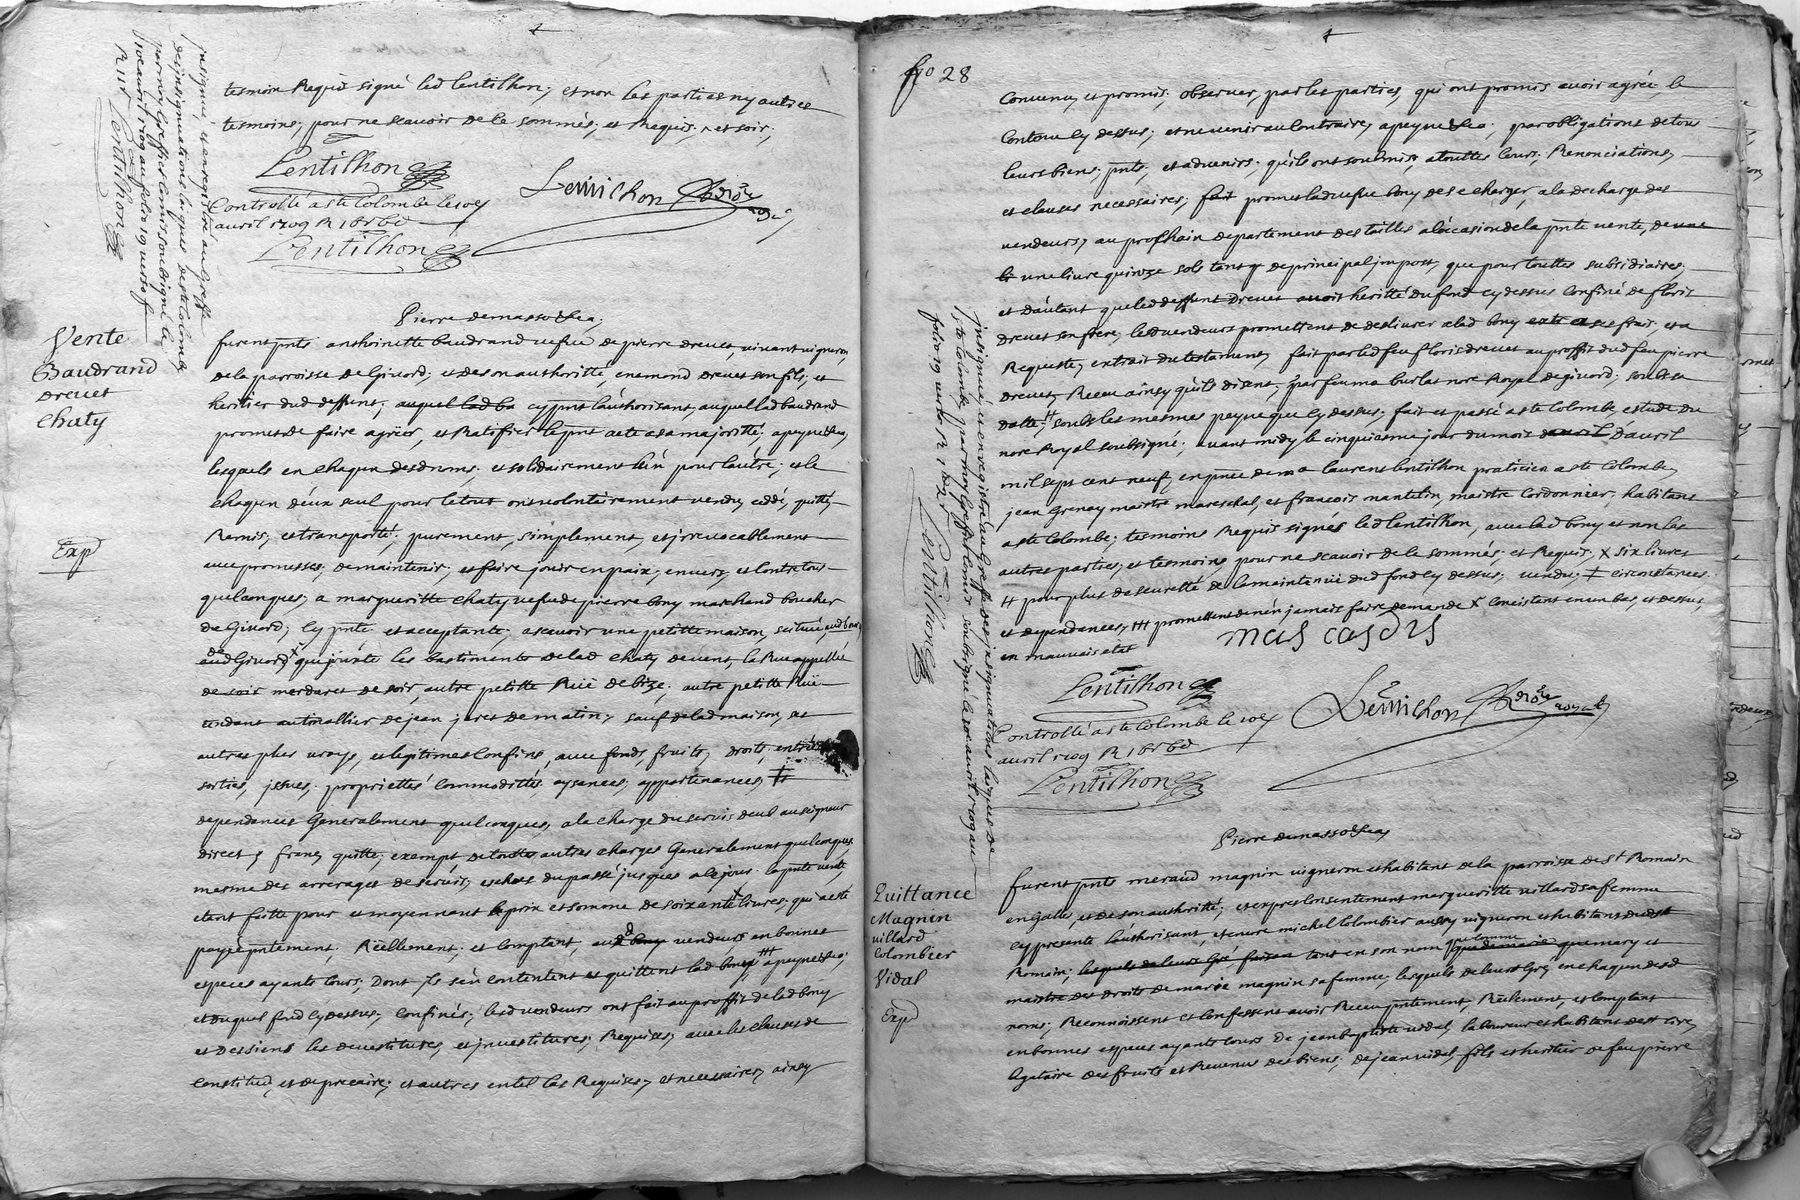 tesmoin Requis signé led Lentilhon; et non les parties ny autres
tesmoins; pour ne scavoir de le sommés; et Requis; et soir;
Lentilhon
Lentilhon
Controllé a ste Colombe le 10e
avril 1709 R 18s 6d
Lentilhon
insinué, et enregistré au Greffe
des insignuations laiques de ste Colombe
par moy Greffier Commis soubsigné le
10e avril 1709 au folio 19 verso
Lentilhon
Vente
Baudrand
Drevet
Chaty
Exp
Pierre demasso &ca;
furent pnts anthoinette baudrand vefve de pierre drevet, vivant vigneron
de la parroisse de Givord; et de son authoritté, enemond drevet son fils; et
heritier dud deffunt; auquel lad ba cy pnt l'authorisant, auquel lad baudrand
promet de faire agréer, et Ratifier le pnt acte a sa majoritté; a peyne &ca,
lesquels en chaqun desd noms; et solidairement l'un pour l'autre; et le
chaqun d'eux seul pour le tout ont volontérement vendu, cedé, quitté,
Remis, et transporté; purement, simplement, et irrevocablement
avec promesses, de maintenir; et faire jouir en paix; envers, et contre tous
quelconques; a margueritte chaty vefve de pierre bony marchand boucher
de Givord; cy pnte et acceptante; a scavoir une petitte maison, scituée, aud bourg
dud Givord x qui jointe les bastiments de lad chaty de vent, la Rue appellée
de soir merdaret de soir, autre petitte Rüe de bize; autre petitte Rüe
tendant au tinallier de jean jaret de matin; sauf de lad maison, ses
autres plus vrays, et legitimes Confins, avec fonds, fruits, droits, entrées
sorties, issues, propriettés Commodittés aysances, appartenances,
dependances Generalement quelconques, a la charge du servis deub au seigneur
direct; franc, quitte; exempt de touttes autres charges Generalement quelconques;
mesme des arrerages de servis, escheus du passé jusques a ce jour. la pnte vente
etant faitte pour et moyennant le prix et somme de soixante livres; qui a esté
payée pntement; Rëellement; et Comptant, aud bony vendeurs en bonnes
especes ayants cours; Dont ils s'en contentent et quittent lad bony ttt a peyne &ca;
et duquel fond cy dessus; Confinés; lesd vendeurs ont fait au proffit de lad bony
et des siens les devestitures, et investitures; Requises, avec les clauses de
Constitud, et de precaire; et autres en tel cas Requises, et necessaires, ainsy
fo 28
Convenu, et promis; observer, par les parties, qui ont promis avoir agréé, le
Contenu cy dessus; et ne venir au Contraire, a peyne &ca; par obligations de tous
leurs biens; pnts, et advenirs; qu'ils ont soubmis, a touttes Cours; Renonciations,
et clauses necessaires; fait promet lad vefve bony de se charger, a la decharge des
vendeurs, au prochain departement des tailles a l'occasion de la pnte vente, de une
le une livre quinze sols tant pr de principal impost, que pour touttes subsidiaires;
et d'autant que led deffunt drevet avoit heritté du fond cy dessus Confiné de floris
drevet son frere, lesd vendeurs promettent de deslivrer a lad bony exte a ses frais, et a
Requeste, extrait du testament, fait par led feu floris drevet au proffit dud feu pierre
drevet, Receu ainsy qu'ils disent; par feu me burlat nore Royal de givord; soubs sa
datte, tt soubs les mesmes peyne que cy dessus; fait et passé a ste Colombe, estude du
nore Royal soubsigné; avant midy le cinquiesme jour du mois d'avril D'avril
mil sept cent neuf, en pnce de me laurent lentilhon praticien a ste Colombe,
jean Grenay maistre mareschal, et francois nantelin, maistre Cordonnier; habitants
a ste Colombe; tesmoins Requis signés led lentilhon, avec lad bony et non les
autres parties, et tesmoins pour ne scavoir de le sommés; et Requis, x six livres
tt pour plus de seuretté de la maintenüe dud fond cy dessus; vendu; ‡ circonstances
et dependances, ttt promettent de n'en jamais faire demande x Consistent en un bas, et dessus,
en mauvais etat
Lentilhon
Lentilhon
Controllé a ste Colombe le 10e
avril 1709 R 18s 6d
Lentilhon
insinué, et enregistré au Greffe des insignuations laiques de
ste Colombe par moy Greffier Commis soubsigné le 10e avril 1709 au
folio 19 verso
Lentilhon
Quittance
Magnin
villard
Colombier
Vidal
Exp
Pierre demasso &ca,
furent pnts meraud magnin vigneron et habitant de la parroisse de st Romain
en Galle, et de son authoritté; et exprés Consentement margueritte villard sa femme
cy presente l'authorisant, et encore michel Colombier aussy vigneron et habitant dud st
Romain; lesquels de leurs Gré font tant en son nom que comme mary et
maistre des droits de marie magnin sa femme, lesquels de leurs Gré, en chaqun desd
noms; Reconnoissent et Confessent avoir Receu pntement, Rëellement, et Comptant
en bonnes especes ayants cours de jean baptiste vidal, laboureur et habitant de st Cire,
legataire des fruits et Revenus des biens; de jean vidal, fils et heritier de feu pierre